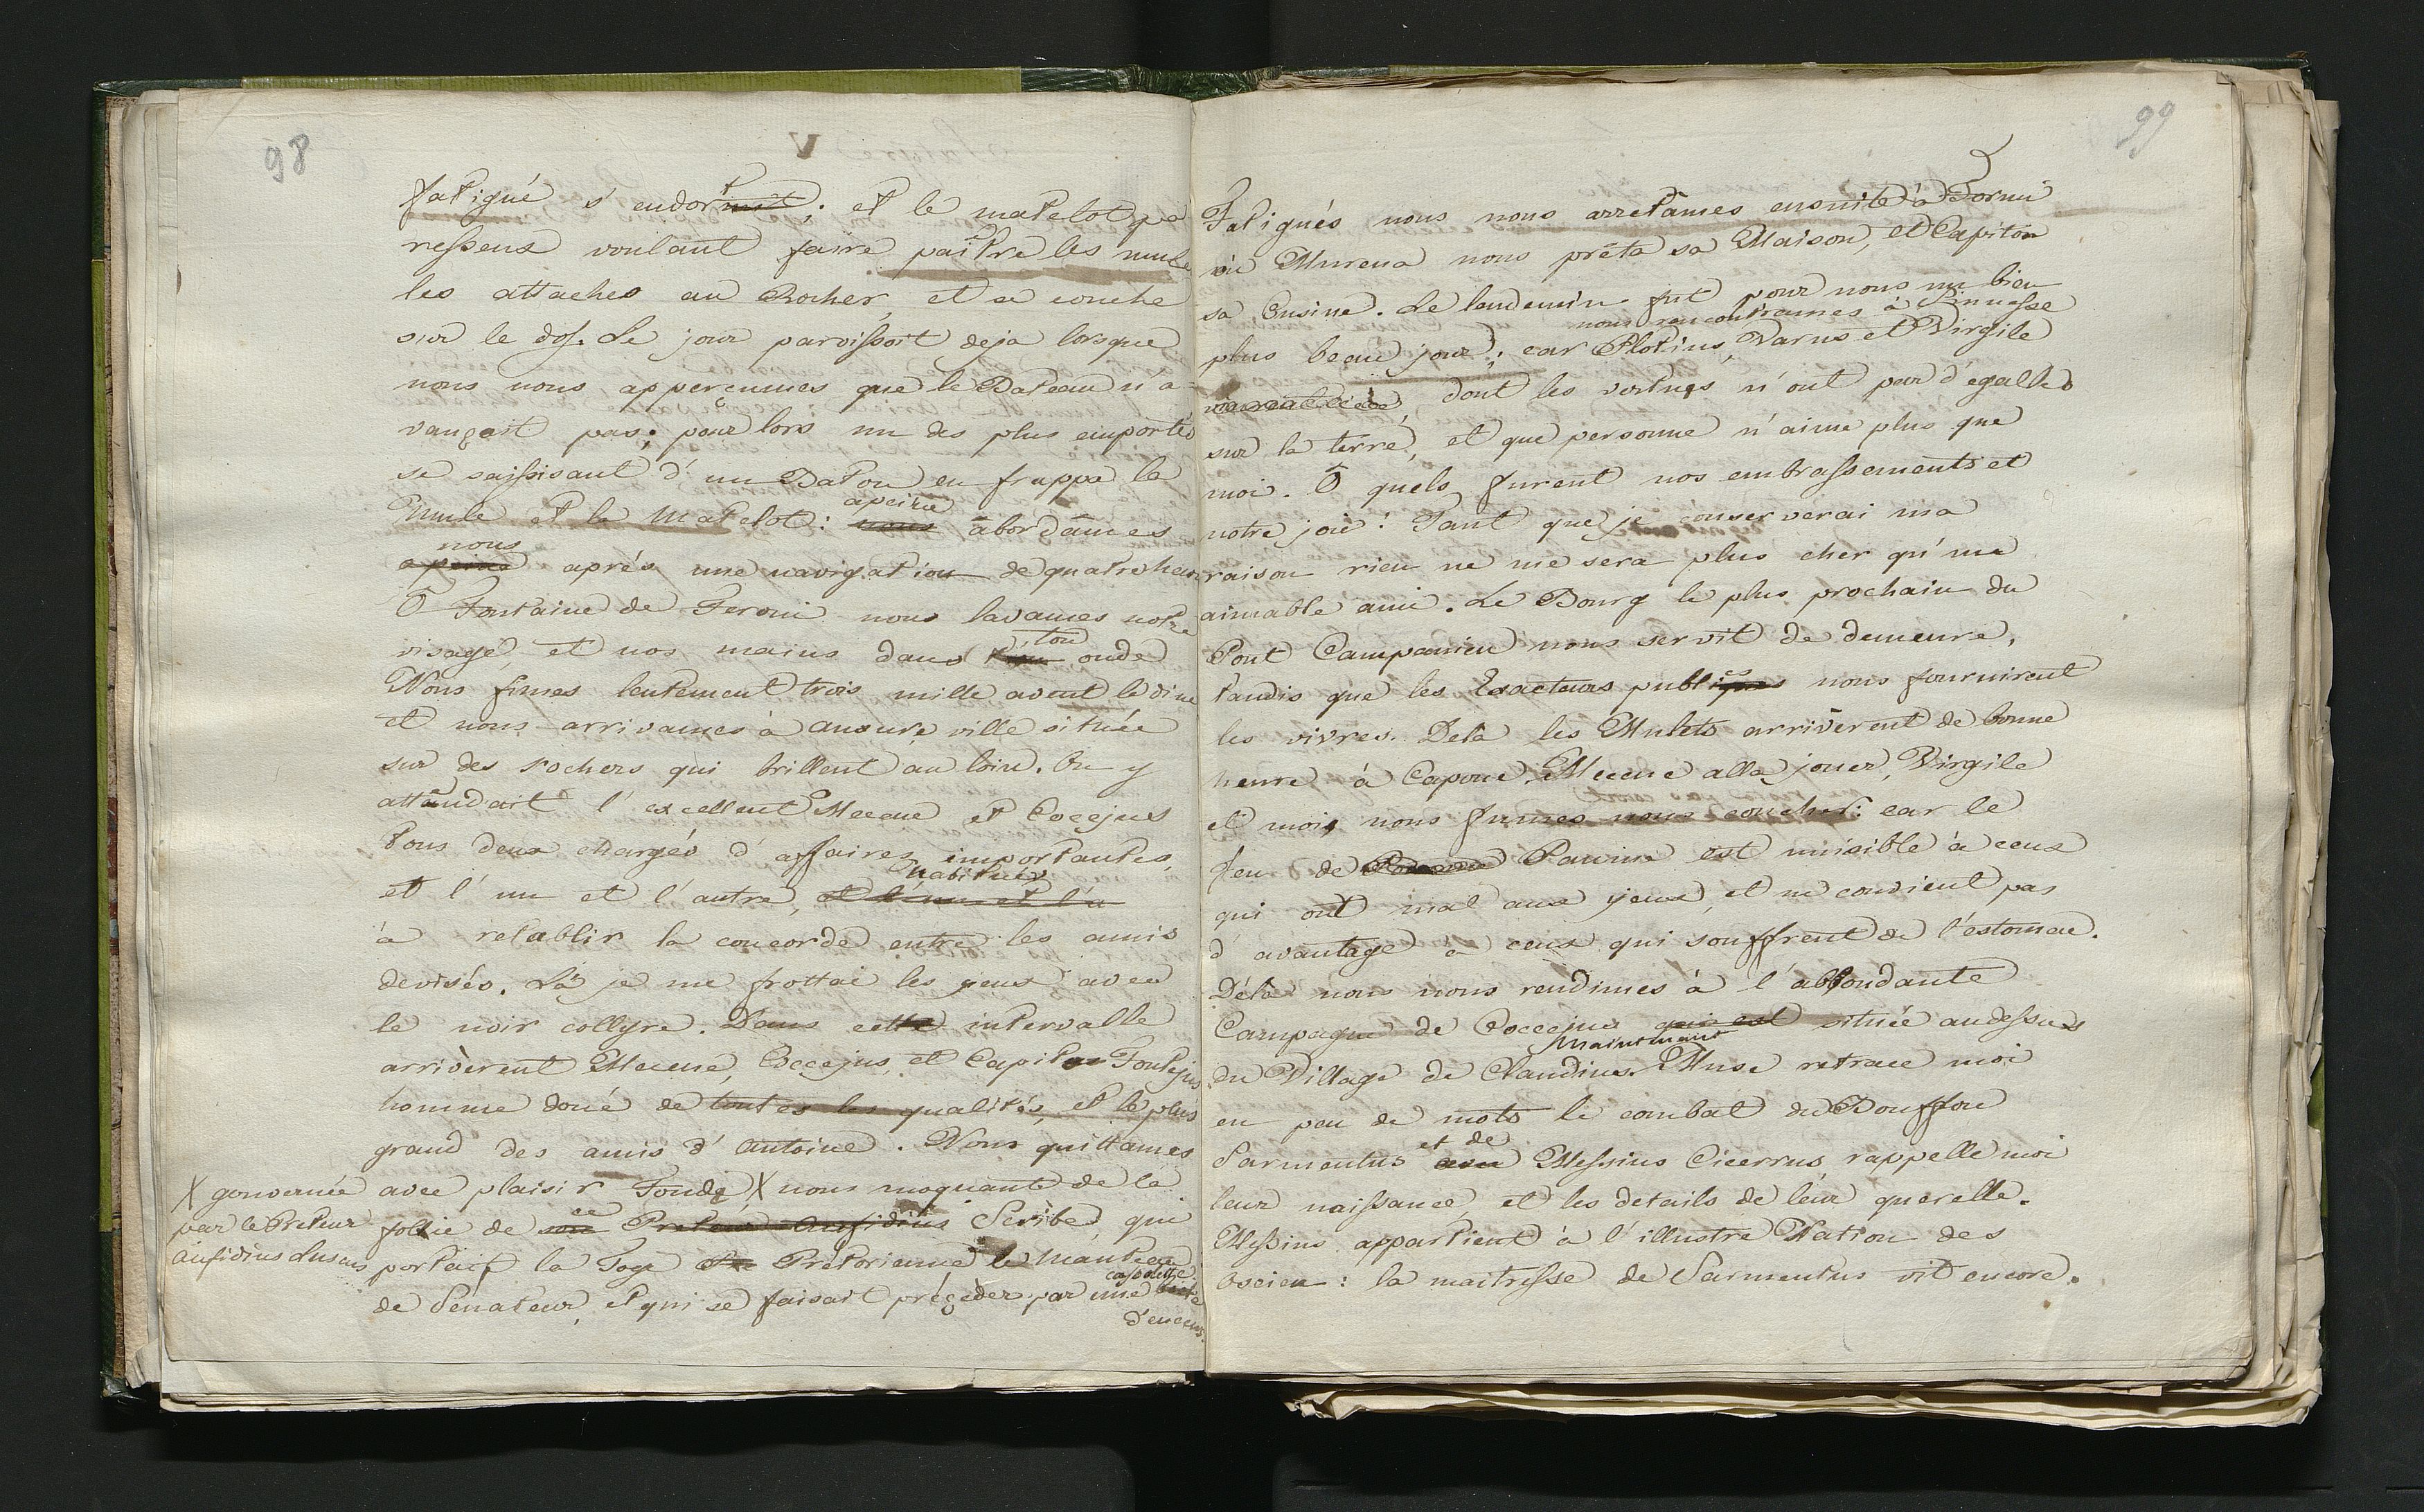 98
V
fatigué s'endort; et le matelot pa
resseux voulant faire paître les mules
les attaches au Rocher, et se couche
sur le dos. Le jour paroissoit deja lorsque
nous nous apperçumes que le Bateau n'a-
vançait pas; pour lors un des plus emportés
se saissisant d'un Baton en frappa le
apeine
mule et le Matelot: nous abordâmes
nous
apeine aprés une navigation de quatre heur
Ô Fontaine de Feroni nous lavames notre
ton
visage, et nos mains dans onde
Nous fimes lentement trois mille avant le dine
et nous arrivames à ansure ville située
sur des rochers qui brillent au loin. On y
attendait l'excellent Mecene et Coccejus
tous deux chargés d'affaires importantes,
habitués
et l'un et l'autre, et l'un et l'a
à retablir la concorde entre les amis
devisés. Là je me frottai les yeux avec
le noir collyre. Dans cette intervalle
arrivèrent Mecene, Coccejus, et Capito Fontejus
homme doué de toutes les qualités, et le plus
grand des amis d'Antoine. Nous quittames
X gouvernée avec plaisir Fondi, X nous moquants de la
ce
par le Préteur follie de son Preteur Aufidius Scribe, qui
aufidius Luscus portait la Toge Prétorienne le Manteau
cassolette
de Senateur, et qui se faisait précéder par une boite
d'encens.
99
Fatigués nous nous arretâmes ensuite à Formi
où Murena nous prêta sa Maison, et Capiton
sa Cusine. Le lendemain fut pour nous un bien
nous rencontrames à Sinuesse
plus beau jour; car Plotius, Varus et Virgile
dont les vertues n'ont pas d'egalles
sur la terre, et que personne n'aime plus que
moi. Ô quels furent nos embrassements et
notre joie! Tant que je conserverai ma
raison rien ne me sera plus cher qu'une
aimable ami. Le Bourg le plus prochain du
Pont Campanien nous servit de demeure,
es
tandis que les Exacteurs publiques nous fournirent
les vivres. Dela les Mulets arrivèrent de bonne
heure à Capoue. Mecene alla jouer, Virgile
et moi, nous fumes nous coucher: car le
Jeu de Paume est nuisible à ceux
qui ont mal aux yeux, et ne convient pas
d'avantage à ceux qui souffrent de l'estomac.
Délà nous nous rendimes à l'abbondante
Campagne de Coccejus qui est située audessus
Maintenant
du Village de Claudius. Muse retrace moi
en peu de mots le combat du Bouffon
et de
Sarmentus avec Messius Cicerrus, rappelle moi
leur naissance, et les details de leur querelle.
Messius appartient à l'illustre Nation des
Oscien: la maitresse de Sarmentus vit encore.